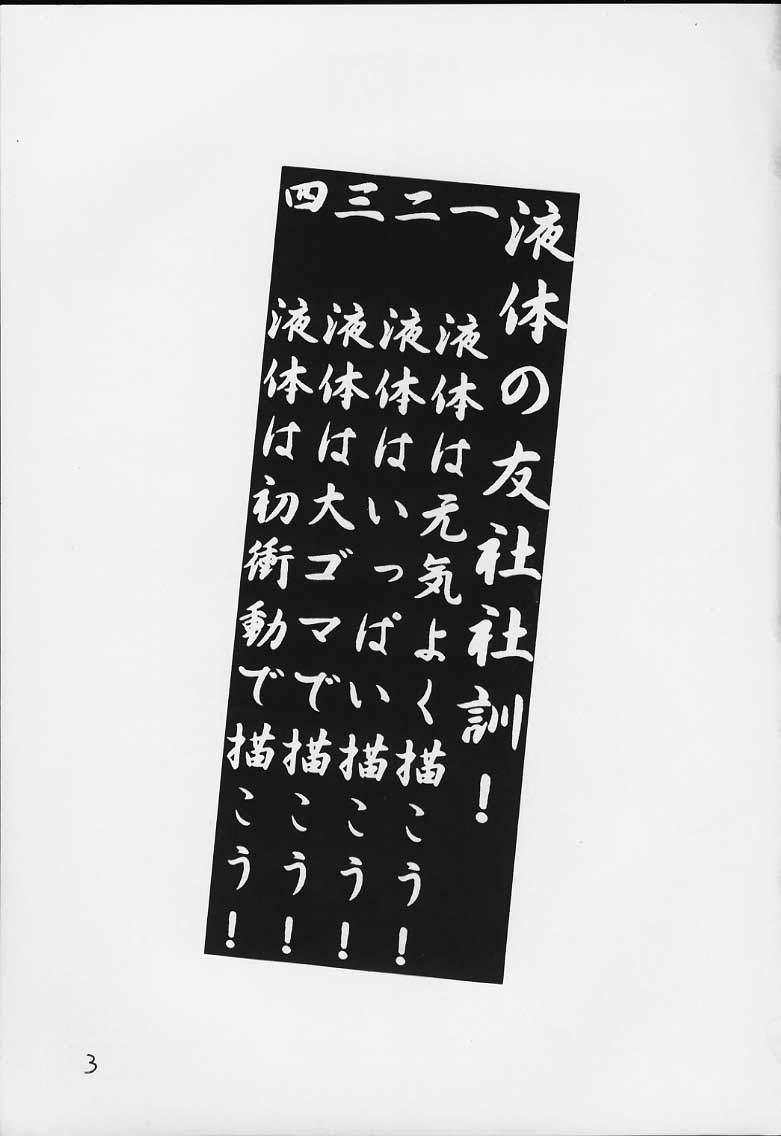 液体の友社社訓！
一 液体は元気よく描こう！
二 液体はいっぱい描こう！
三 液体は大ゴマで描こう！
四 液体は初衝動で描こう！
3